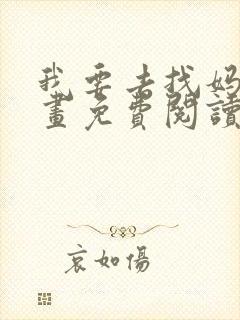 我要去找妈
畫免費閱讀
哀如傷